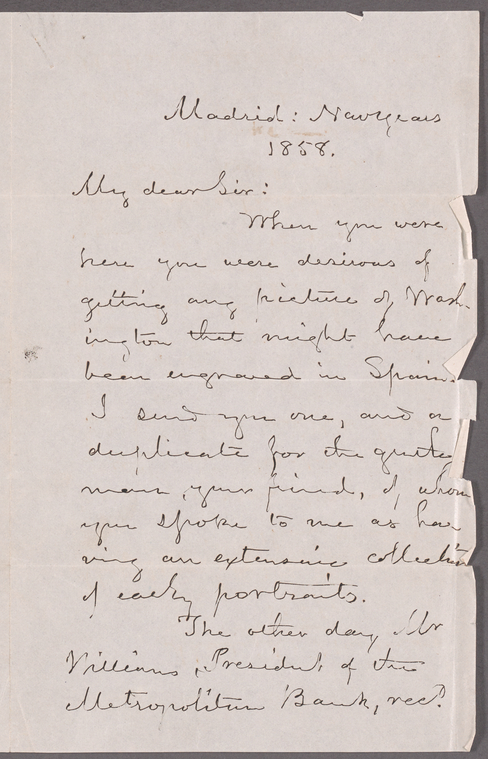 Madrid: Newyears
1858.
My dear Sir:
When you were
here you were desirous of
getting any picture of Wash-
ington that might have
been engraved in Spain.
I send you one, and a
duplicate for the gentle
man, your friend, of whom
you spoke to me as ha-
ving an extensive collection
of early portraits.
The other day, Mr
Williams, President of the
Metropolitan Bank, recd.